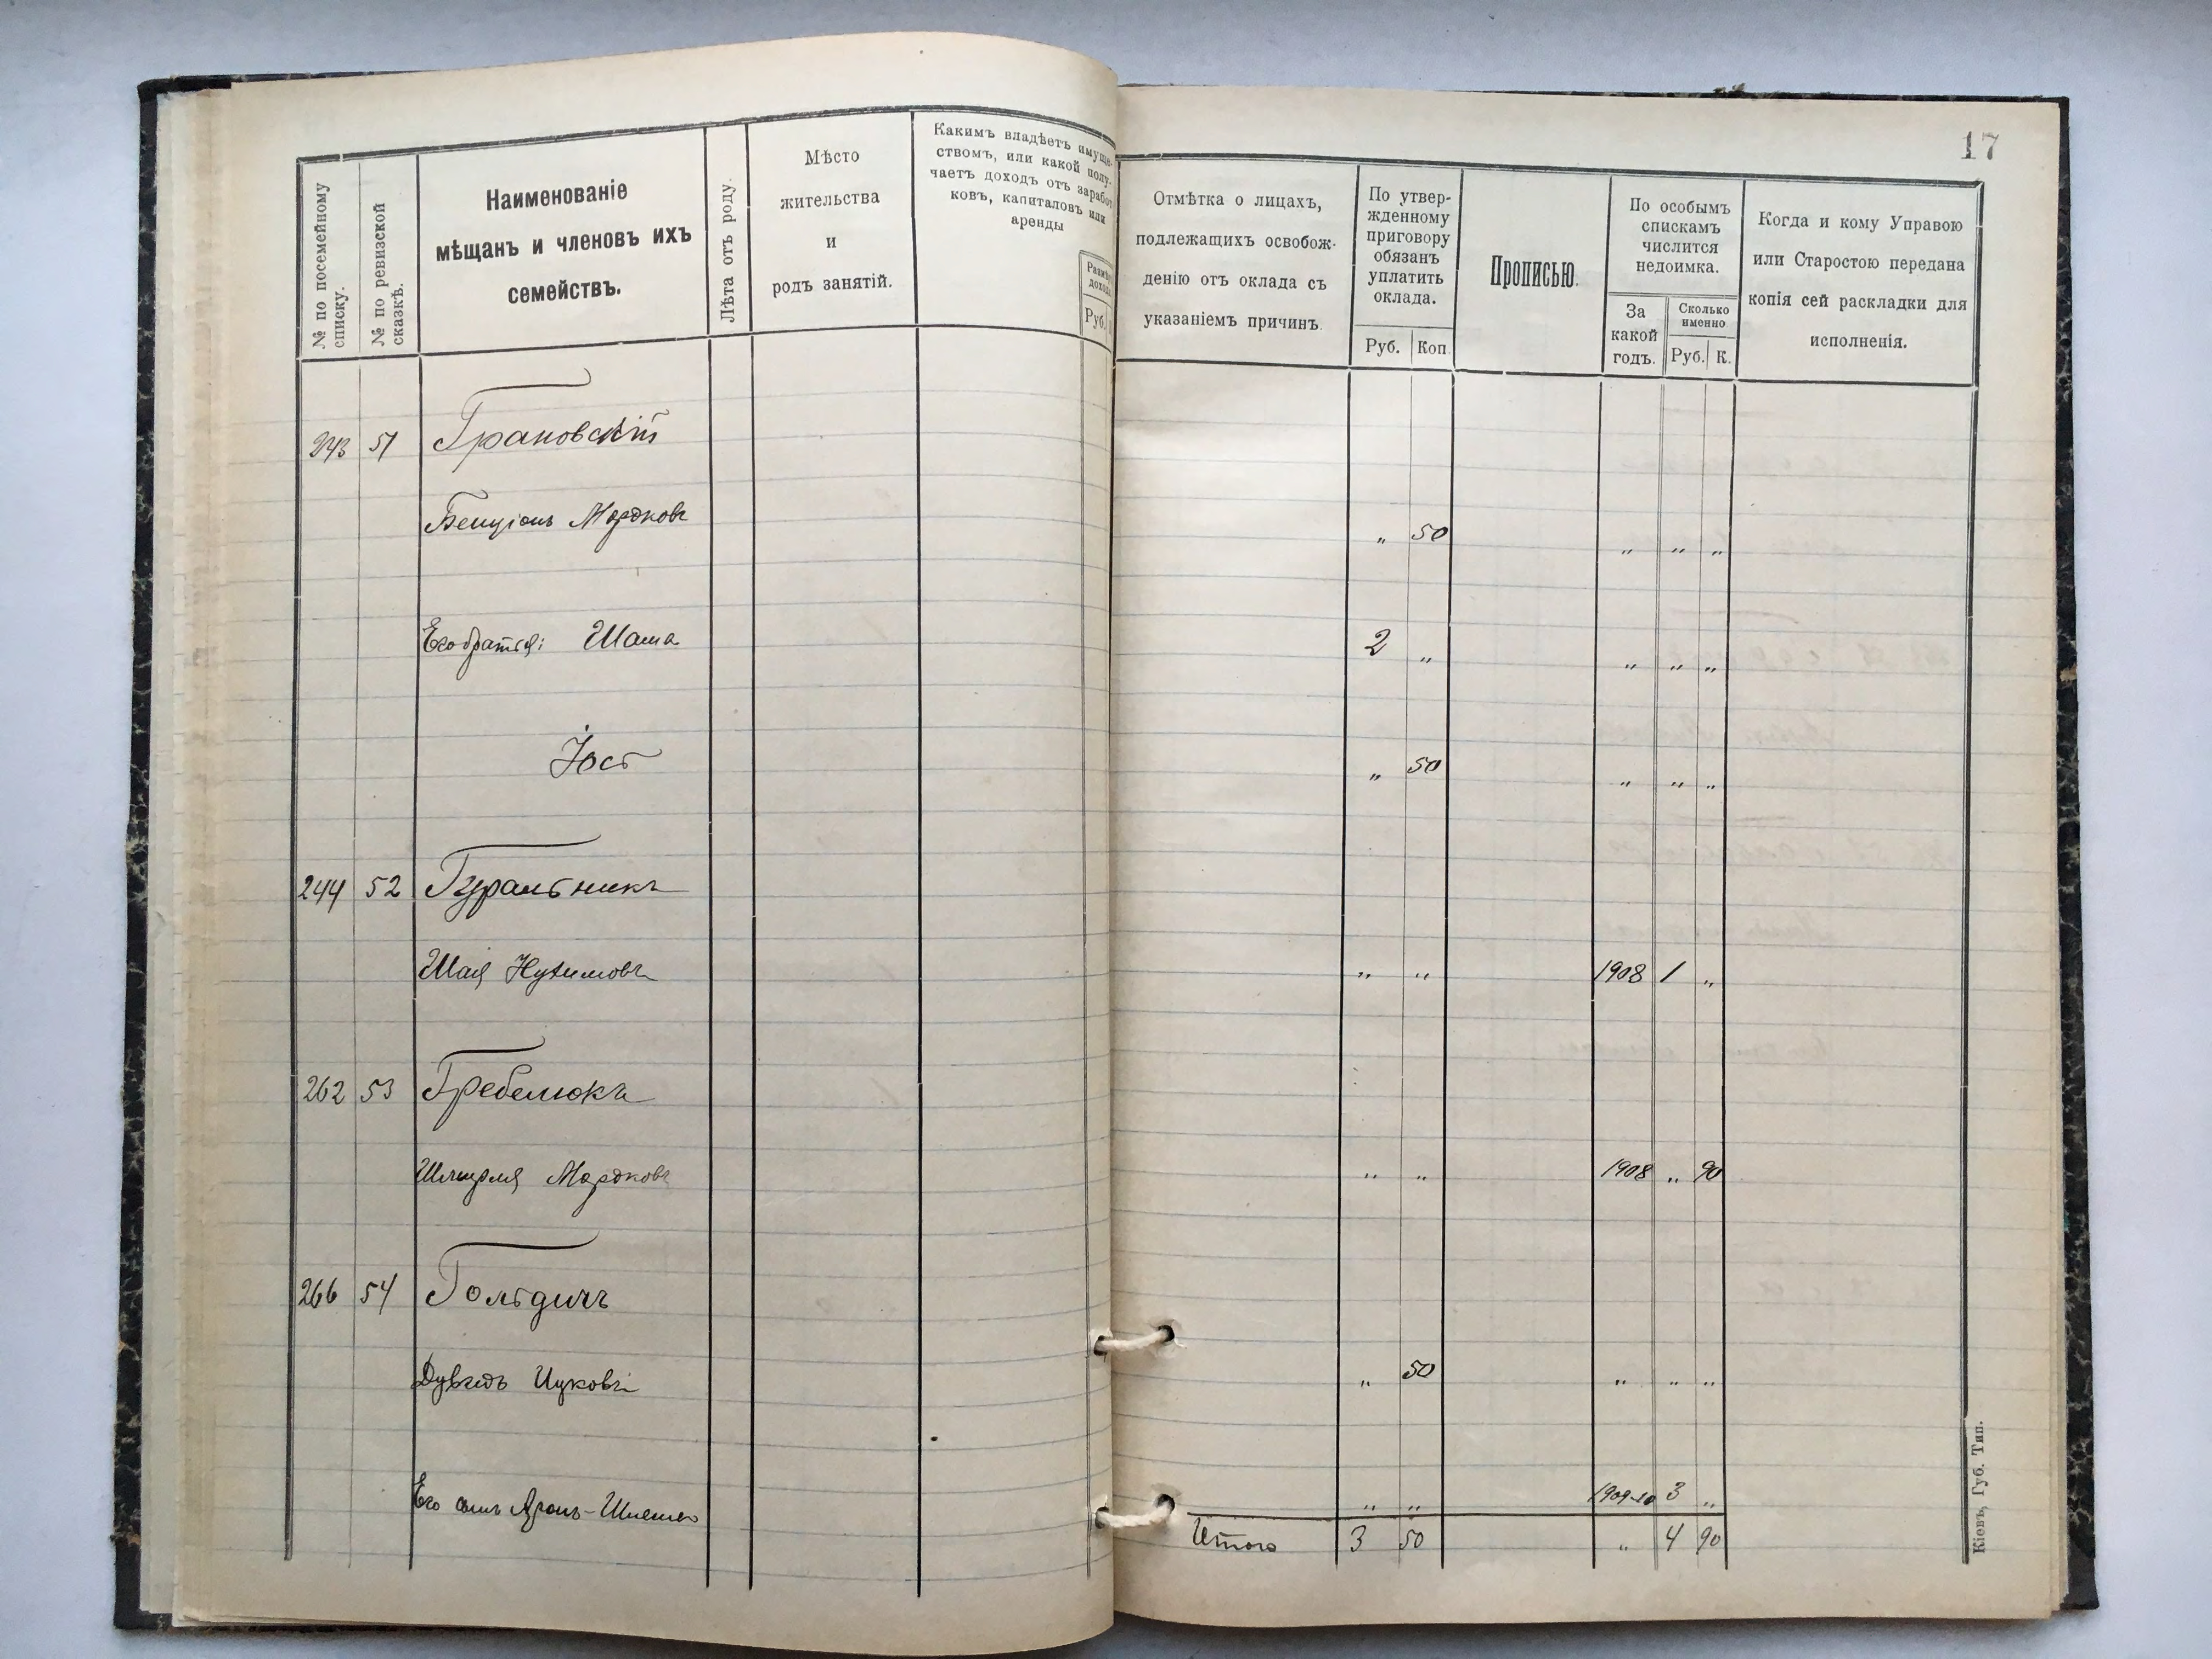 17
№ по посемейному списку.
№ по ревизской сказкѣ.
Наименованіе
мѣщанъ и членовъ ихъ
семействъ.
Лѣта отъ роду.
Мѣсто
жительства
и
родъ занятій.
Какимъ владѣетъ имуще-
ствомъ, или какой полу-
чаетъ доходъ отъ заработ
ковъ, капиталовъ или
аренды
Руб.
Отмѣтка о лицахъ,
подлежащихъ освобож-
денію отъ оклада съ
указаніемъ причинъ.
По утвер-
жденному
приговору
обязанъ
уплатить
оклада.
Руб. Коп.
Прописью.
По особымъ
спискамъ
числится
недоимка.
За
какой
годъ.
Сколько
именно
Руб. К.
Когда и кому Управою
или Старостою передана
копія сей раскладки для
исполненія.
243 51 Грановскій
Бенціонъ Мордковъ „ 50 „ „ „
Его братья: Шама 2 „ „ „ „
Іось „ 50 „ „ „
244 52 Гуральникъ
Шая Нухимовъ „ „ 1908 1 „
262 53 Гребелюкъ
Мордковъ „ „ 1908 „ 90
266 54 Гольдичъ
Дувидъ Ицковъ „ 50 „ „ „
Его сынъ Аронъ-Шлема „ „ 1909-10 3 „
Итого 3 50 „ 4 90
Кіевъ, Губ. Тип.